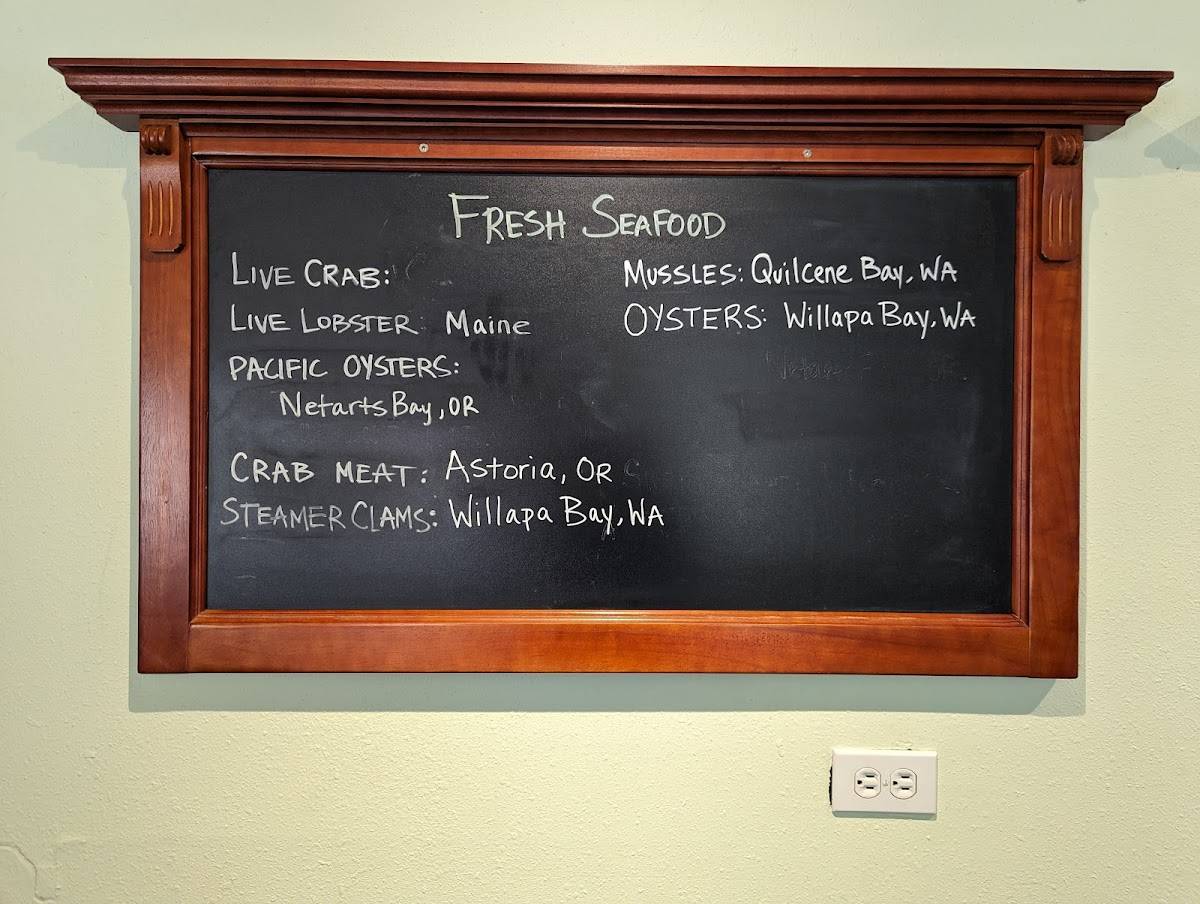 FRESH SEAFOOD
LIVE CRAB:
LIVE LOBSTER: Maine
PACIFIC OYSTERS:
Netarts Bay, OR
CRAB MEAT: Astoria, OR
STEAMER CLAMS: Willapa Bay, WA
MUSSLES: Quilcene Bay, WA
OYSTERS: Willapa Bay, WA